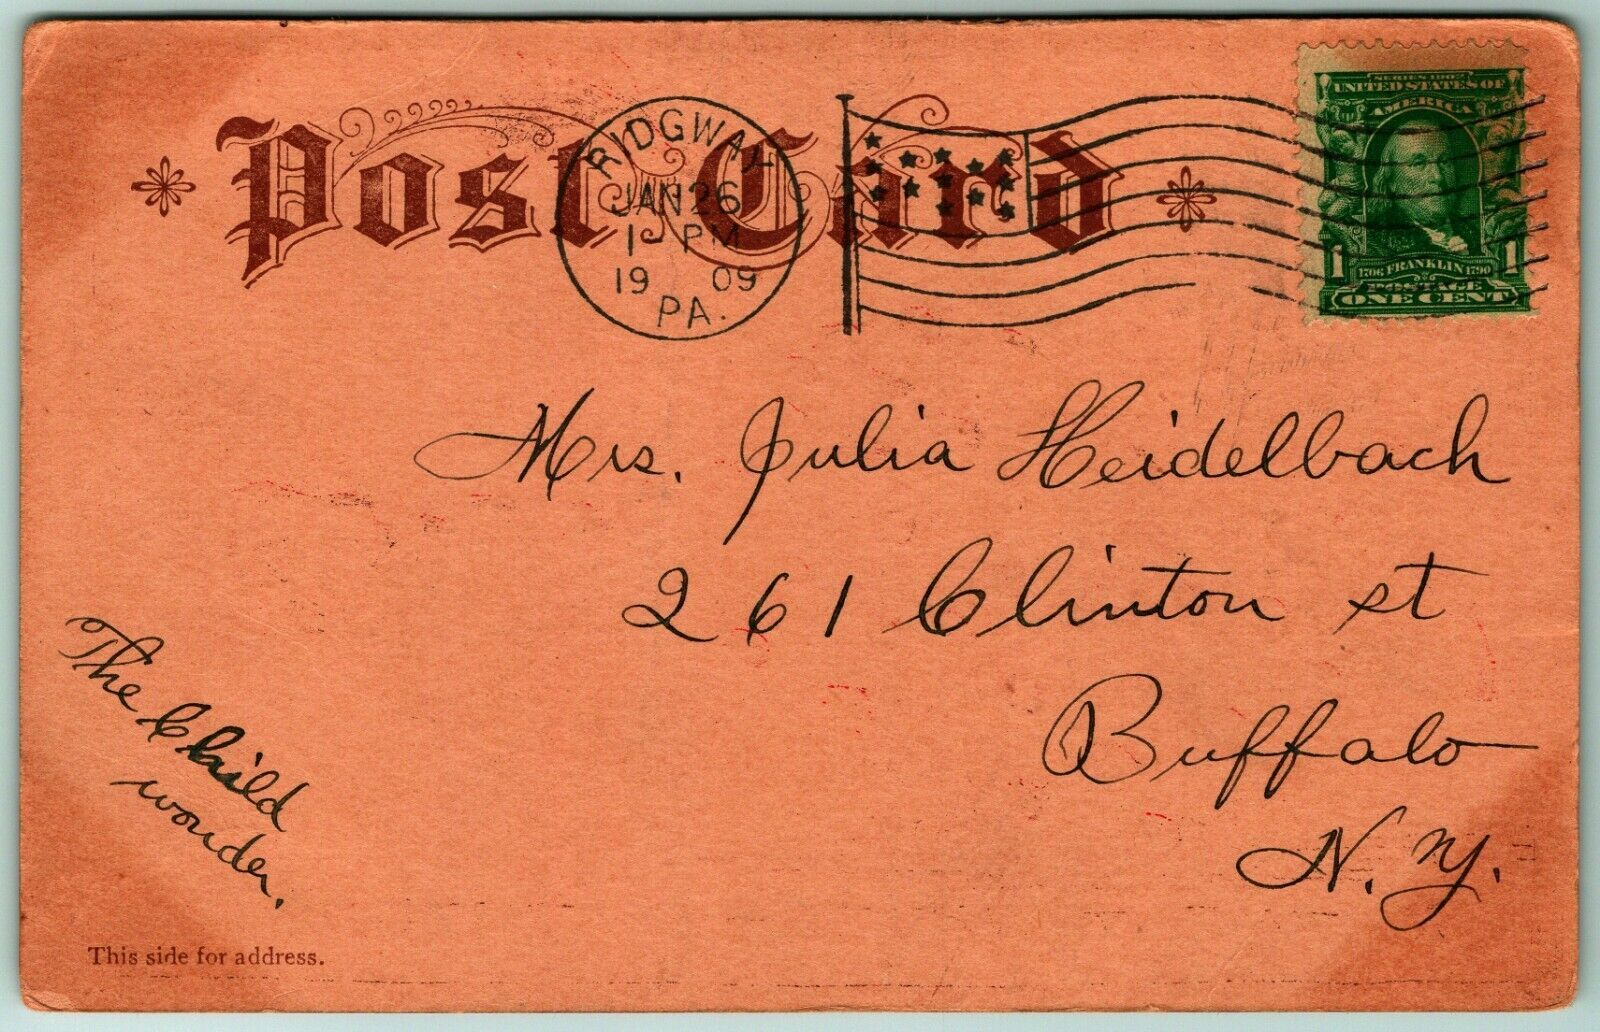 Post Card
RIDGWAY
JAN 26
1 PM
19 09
PA.
SERIES 1902
UNITED STATES OF
AMERICA
1 1
1706 FRANKLIN 1790
POSTAGE
ONE CENT
Mrs. Julia Heidelbach
261 Clinton st
Buffalo
N. Y.
The Child
wonder.
This side for address.